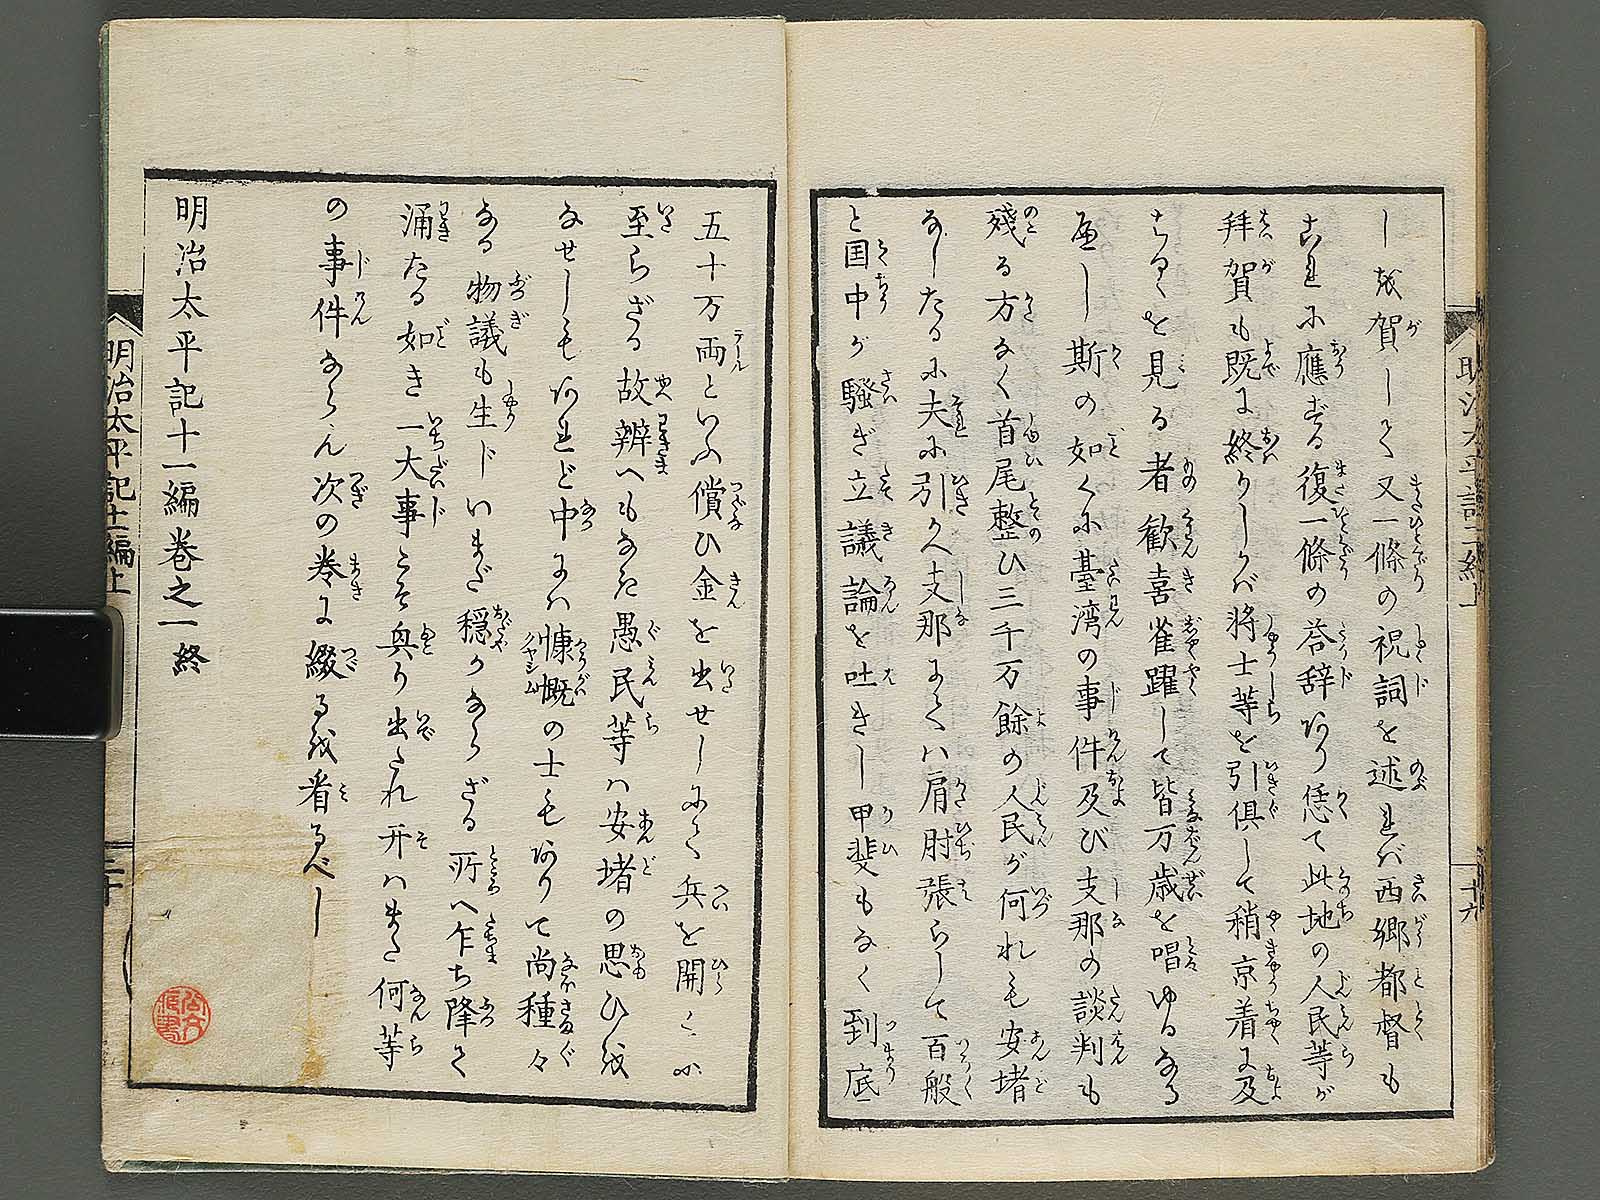 し越賀しく又一條の祝詞を述れバ西郷都督も
これに應ずる復一條の荅辞あり恁て此地の人民等が
拜賀も既に終りしかバ将士等を引倶して稍京着に及
ちるを見る者歓喜雀躍して皆万歳を唱ゆるなる
べし斯の如くに臺湾の事件及び支那の談判も
残る方なく首尾整ひ三千万餘の人民が何れも安堵
なしたるに夫に引かへ支那にてハ肩肘張らして百般
と国中が騒ぎ立議論を吐きし甲斐もなく到底
五十万両といふ償ひ金を出せしにて兵を開くに
至らざる故辨へもなき愚民等ハ安堵の思ひを
なせしもあれど中にハ慷慨の士もありて尚種々
なる物議も生じいまだ穏かならざる所へ乍ち降て
涌たる如き一大事こそ興り出たれ开ハまた何等
の事件ならん次の巻に綴るを看るべし
明治太平記十一編巻之一終
明治太平記十一編上